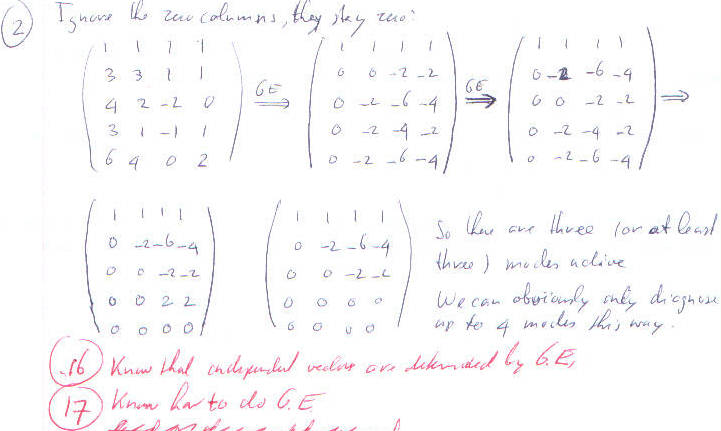 2 Ignore the zero columns, they stay zero:
1 1 1 1 1 1 1 1 1 1 1 1
3 3 1 1 0 0 -2 -2 0 -2 -6 -4
4 2 -2 0 GE ⇒ 0 -2 -6 -4 GE ⇒ 0 0 -2 -2 ⇒
3 1 -1 1 0 -2 -4 -2 0 -2 -4 -2
6 4 0 2 0 -2 -6 -4 0 -2 -6 -4
1 1 1 1 1 1 1 1
0 -2 -6 -4 0 -2 -6 -4
0 0 -2 -2 0 0 -2 -2
0 0 2 2 0 0 0 0
0 0 0 0 0 0 0 0
So there are three (or at least
three) modes active
We can obviously only diagnose
up to 4 modes this way.
.16 Know that independent vectors are determined by G.E,
17 Know how to do G.E.